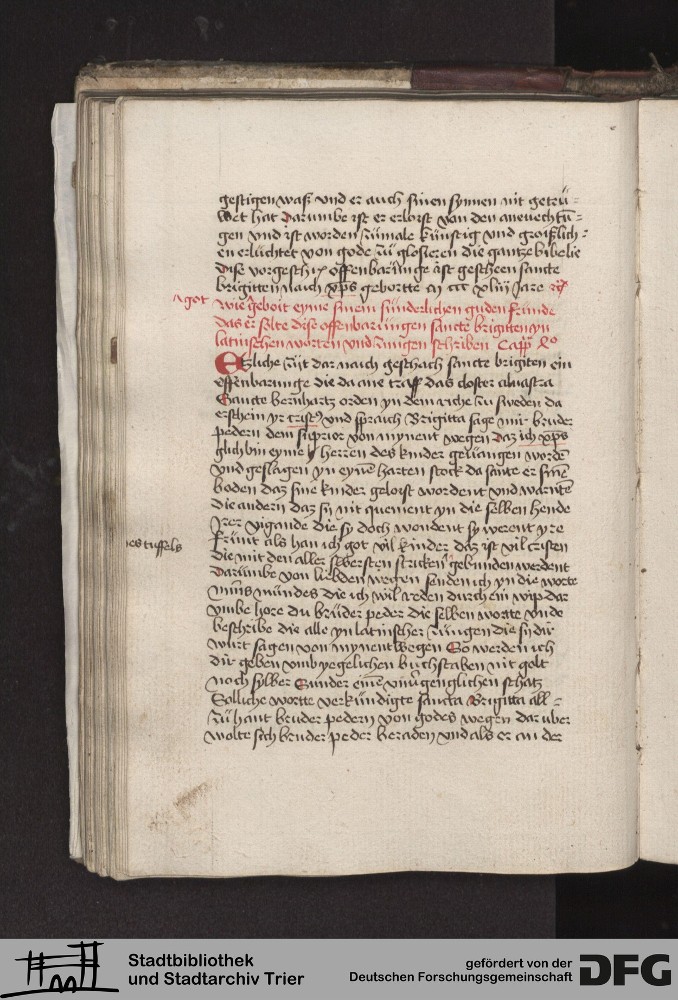 gestigen waß vnd er auch sinen synnen nit getrü=
wet hat Darumbe ist er erlost van den anevechtū=
gen vnd ist worden zümale künstig vnd groißlich=
en erlüchtet von gode zü glosieren die gantze bibelie
Dise vorgesch offenbarünge ist gescheen sancte
brigitten naich xp̄s gebortte m ccc xlüj Jare
^got Wie geboit eyme sinem sünderlichen guden fründe
das er solte dise offenbarüngen sancte brigitten yn
latinschen worten vnd zungen schriben Capp xo
Etzliche zijt dar naich geschach sancte brigiten ein
offenbarunge die da ane traff das closter aluastra
Sancte bernhartz orden yn dem riche zu sweden da
erschein yr cristꝰ vnd sprach Brigitta sage mir bruder
pedern dem suprior von mynent wegen daz ich xp̄s
glich bin eyme herren des kinder gefangen wordē
vnd geslagen yn eynē harten stock da sante er sinē
boden daz sine kinder geloist wordent vnd warntē
die andern daz sy nit quement yn die selben hende
Irer vigande die sy doch wondent sy werent yre
frünt als han ich got vil kinder daz ist vil cristen
nes tuffels
die mit den aller swersten stricken gebunden werdent
Darümbe von liebden wegen senden ich yn die worte
mins mündes die ich wil reden durch ein wip dar
vmbe hore du brüder peder die selben wortte vnde
beschribe die alle yn latinscher züngen die sy dir
wirt sagen von mynent wegen So werden ich
dir geben vmb yegelichen buchstaben nit golt
noch sylber Sunder einē schatz
Solliche wortte verkündigte sancta Brigitta all=
zü hant bruder pedern von godes wegen dar uber
wolte sich bruder peder beraden vnd als er an der
Stadtbibliothek
und Stadtarchiv Trier
gefördert von der
Deutschen Forschungsgemeinschaft
DFG